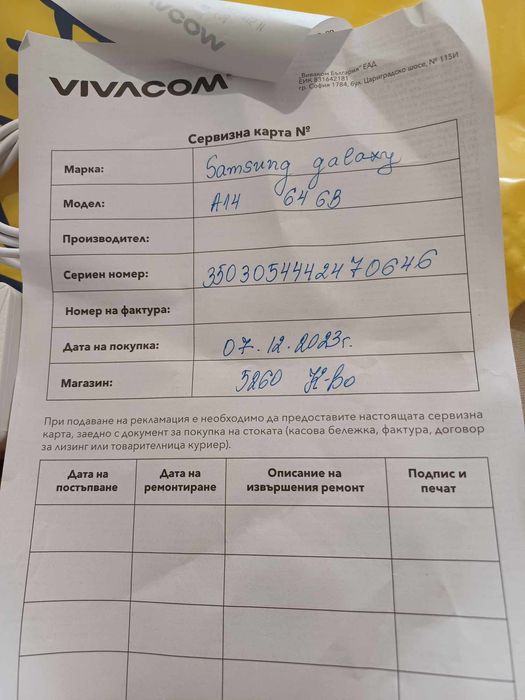 VIVACOM
VIVACOM®
"Виваком България" ЕАД
ЕИК 831642181
гр. София 1784, бул. Цариградско шосе, № 115И
Сервизна карта №
Марка: Samsung galaxy
Модел: A14 64 GB
Производител:
Сериен номер: 3503054442470646
Номер на фактура:
Дата на покупка: 07.12.2023г.
Магазин: 5260 К-во
При подаване на рекламация е необходимо да предоставите настоящата сервизна
карта, заедно с документ за покупка на стоката (касова бележка, фактура, договор
за лизинг или товарителница куриер).
Дата на постъпване Дата на ремонтиране Описание на извършения ремонт Подпис и печат